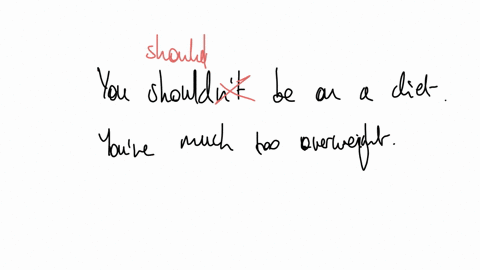 should
You shouldn't be on a diet.
You're much too overweight.